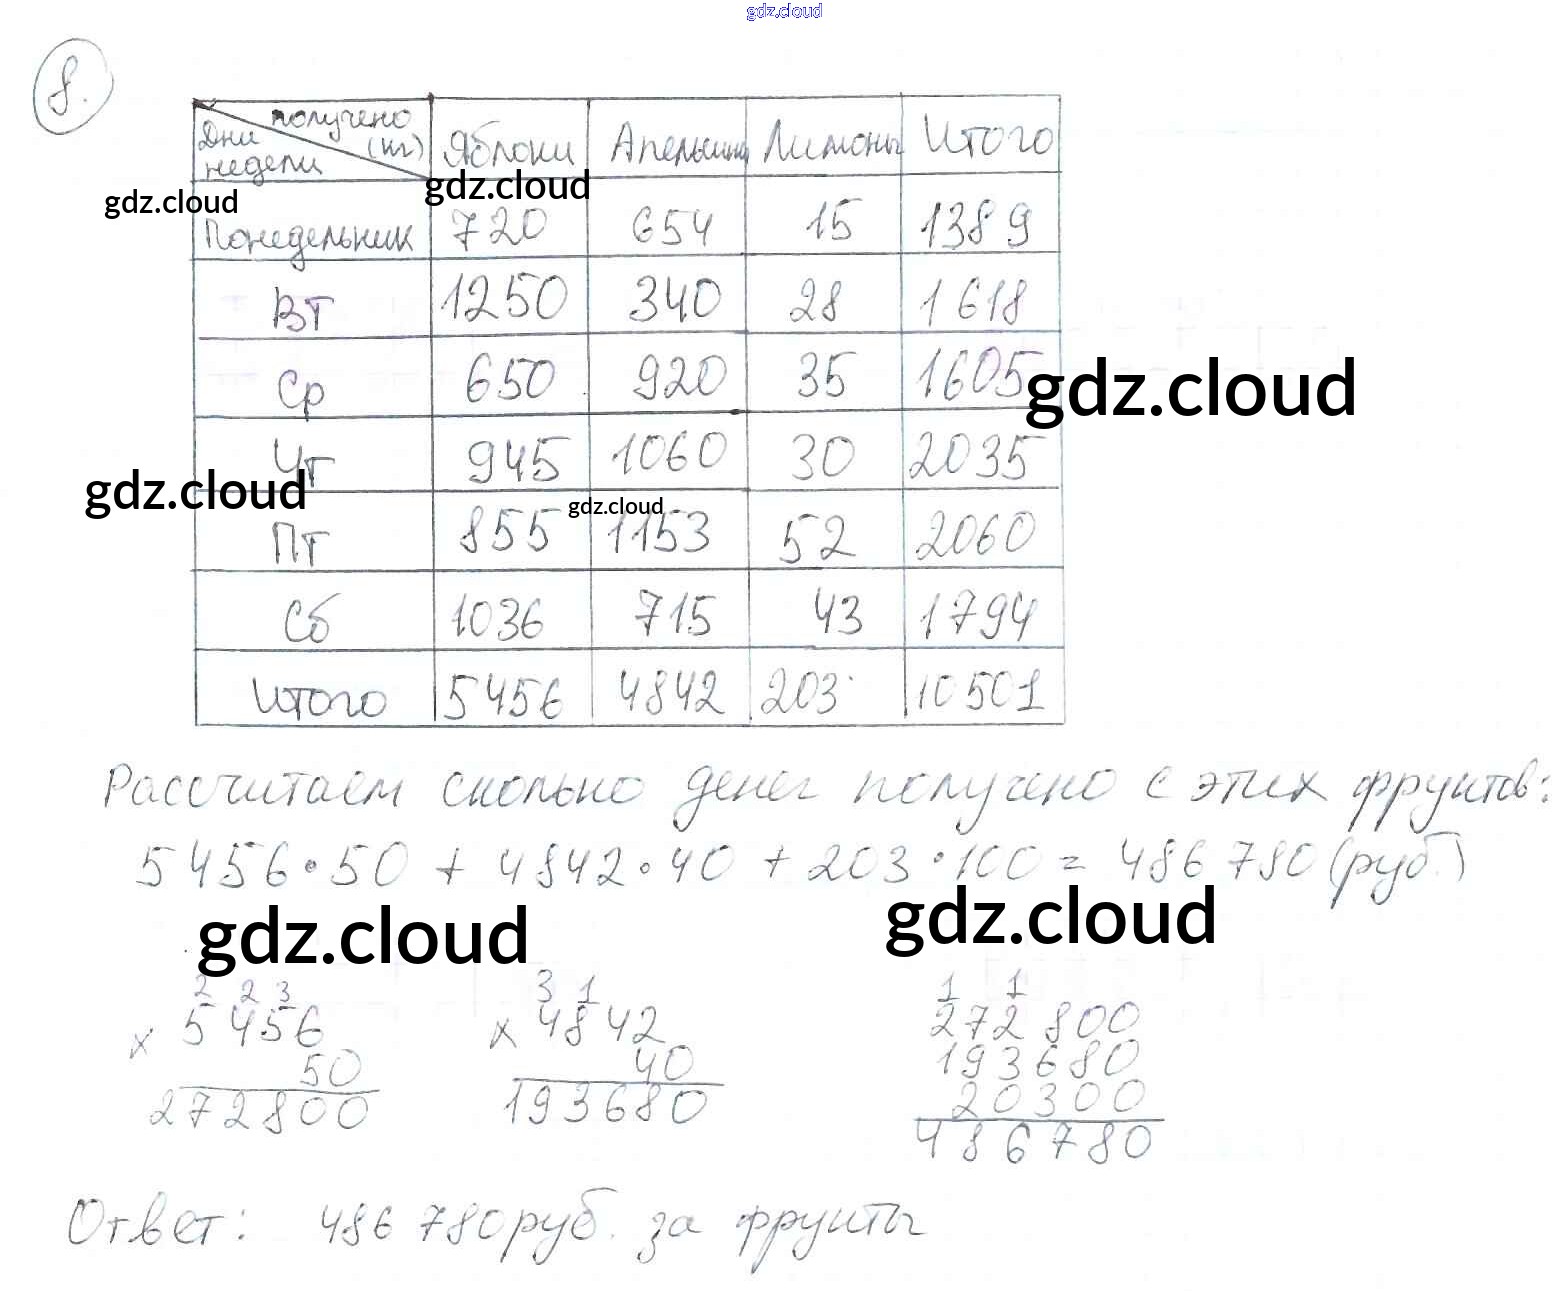 gdz.cloud
8.
получено (кг) Яблоки Апельсины Лимоны Итого
Дни недели
gdz.cloud gdz.cloud
Понедельник 720 654 15 1389
Вт 1250 340 28 1618
Ср 650 920 35 1605
gdz.cloud
Чт 945 1060 30 2035
gdz.cloud gdz.cloud
Пт 855 1153 52 2060
Сб 1036 715 43 1794
Итого 5456 4842 203 10501
Рассчитаем сколько денег получено с этих фруктов:
5456·50 + 4842·40 + 203·100 = 486 780 (руб.)
gdz.cloud gdz.cloud
2 2 3 3 1 1 1
× 5456 × 4842 272 800
50 40 193680
20300
272800 193680 486780
Ответ: 486 780 руб. за фрукты